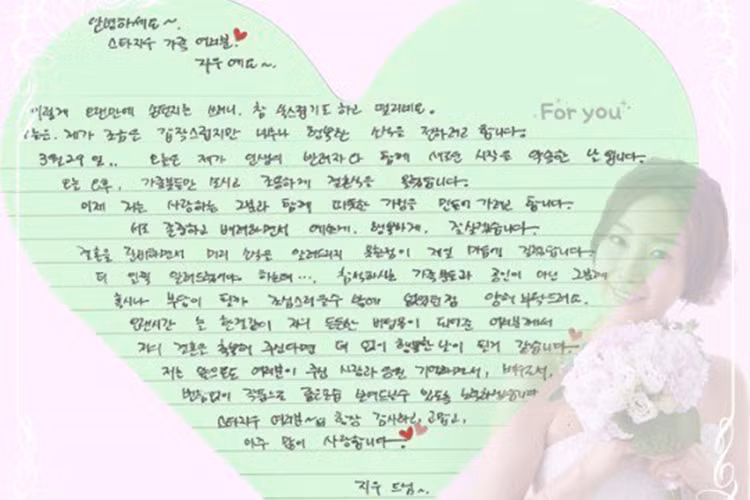 안녕하세요~.
스타지우 가족 여러분.
지우예요~.
이렇게 오랜만에 손편지를 쓰려니, 참 쑥스럽기도 하고 떨리네요.
오늘은, 제가 조금은 갑작스럽지만 너무나 행복한 소식을 전하려고 합니다.
For you
3월 29일.. 오늘은 제가 인생의 반려자와 함께 새로운 시작을 약속한 날입니다.
오늘 오후, 가족분들만 모시고 조용하게 결혼식을 올렸습니다.
이제 저는 사랑하는 그분과 함께 따뜻한 가정을 만들어 가려고 합니다.
서로 존중하고 배려하면서 예쁘게, 행복하게, 잘살겠습니다.
결혼을 준비하면서 미리 소식을 알려드리지 못한점이 제일 마음에 걸렸습니다.
더 일찍 알려드렸어야 하는데..., 참석하시는 가족분들과 공인이 아닌 그분께
혹시나 부담이 될까 조심스러울수 밖에 없었던점 양해 부탁드려요.
오랜시간 늘 한결같이 저의 든든한 버팀목이 되어준 여러분께서
저의 결혼을 축복해 주신다면 더 없이 행복한 날이 될거 같습니다.
저는 앞으로도 여러분이 주신 사랑과 응원 기억하면서,
변함없이 좋은 모습 보여드릴수 있도록 노력하겠습니다
스타지우 여러분~ 항상 감사하고, 고맙고,
아주 많이 사랑합니다
지우 드림~.